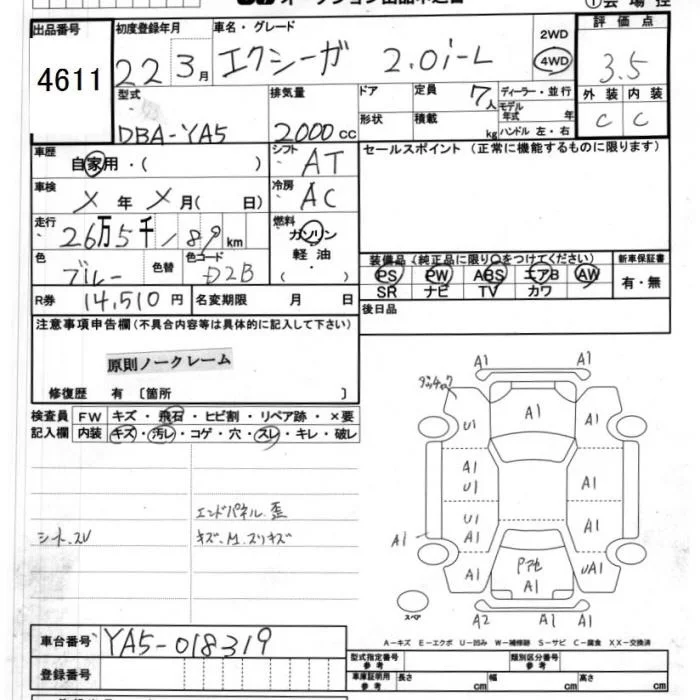 出品番号 4611
初度登録年月 22 3月
車名・グレード エクシーガ 2.0i-L
2WD
4WD
評価点 3.5
外装 内装
C C
型式 DBA-YA5
排気量 2000cc
ドア
形状
定員 7人
積載 kg
ディーラー・並行
モデル年式 年
ハンドル 左・右
車歴 自家用・( )
シフト AT
セールスポイント (正常に機能するものに限ります)
車検 X 年 X 月( 日)
冷房 AC
走行 26万5千189km
燃料 ガソリン
軽油
・
( )
色 ブルー 色替 色コード D2B
装備品(純正品に限り○をつけてください)
PS PW ABS エアB AW
SR ナビ TV カワ
新車保証書
有・無
R券 14,510円 名変期限 月 日
後日品
注意事項申告欄(不具合内容等は具体的に記入して下さい)
原則ノークレーム
修復歴 有 〔箇所 〕
検査員記入欄
FW キズ・飛石・ヒビ割・リペア跡・×要
内装 キズ・汚レ・コゲ・穴・スレ・キレ・破レ
エンドパネル.歪
シート.スレ キズ.M.スリキズ
A1 A1
A1 U1 A1
A1 U1 A1
U1 A1 A1
A1
A1 A1 UA1
A2 A1 A1
スペア
A-キズ E-エクボ U-凹み W-補修跡 S-サビ C-腐食 XX-交換済
車台番号 YA5-018319
登録番号
型式指定番号 参考
類別区分番号 参考
車庫証明用 参考 長さ cm 幅 cm 高さ cm